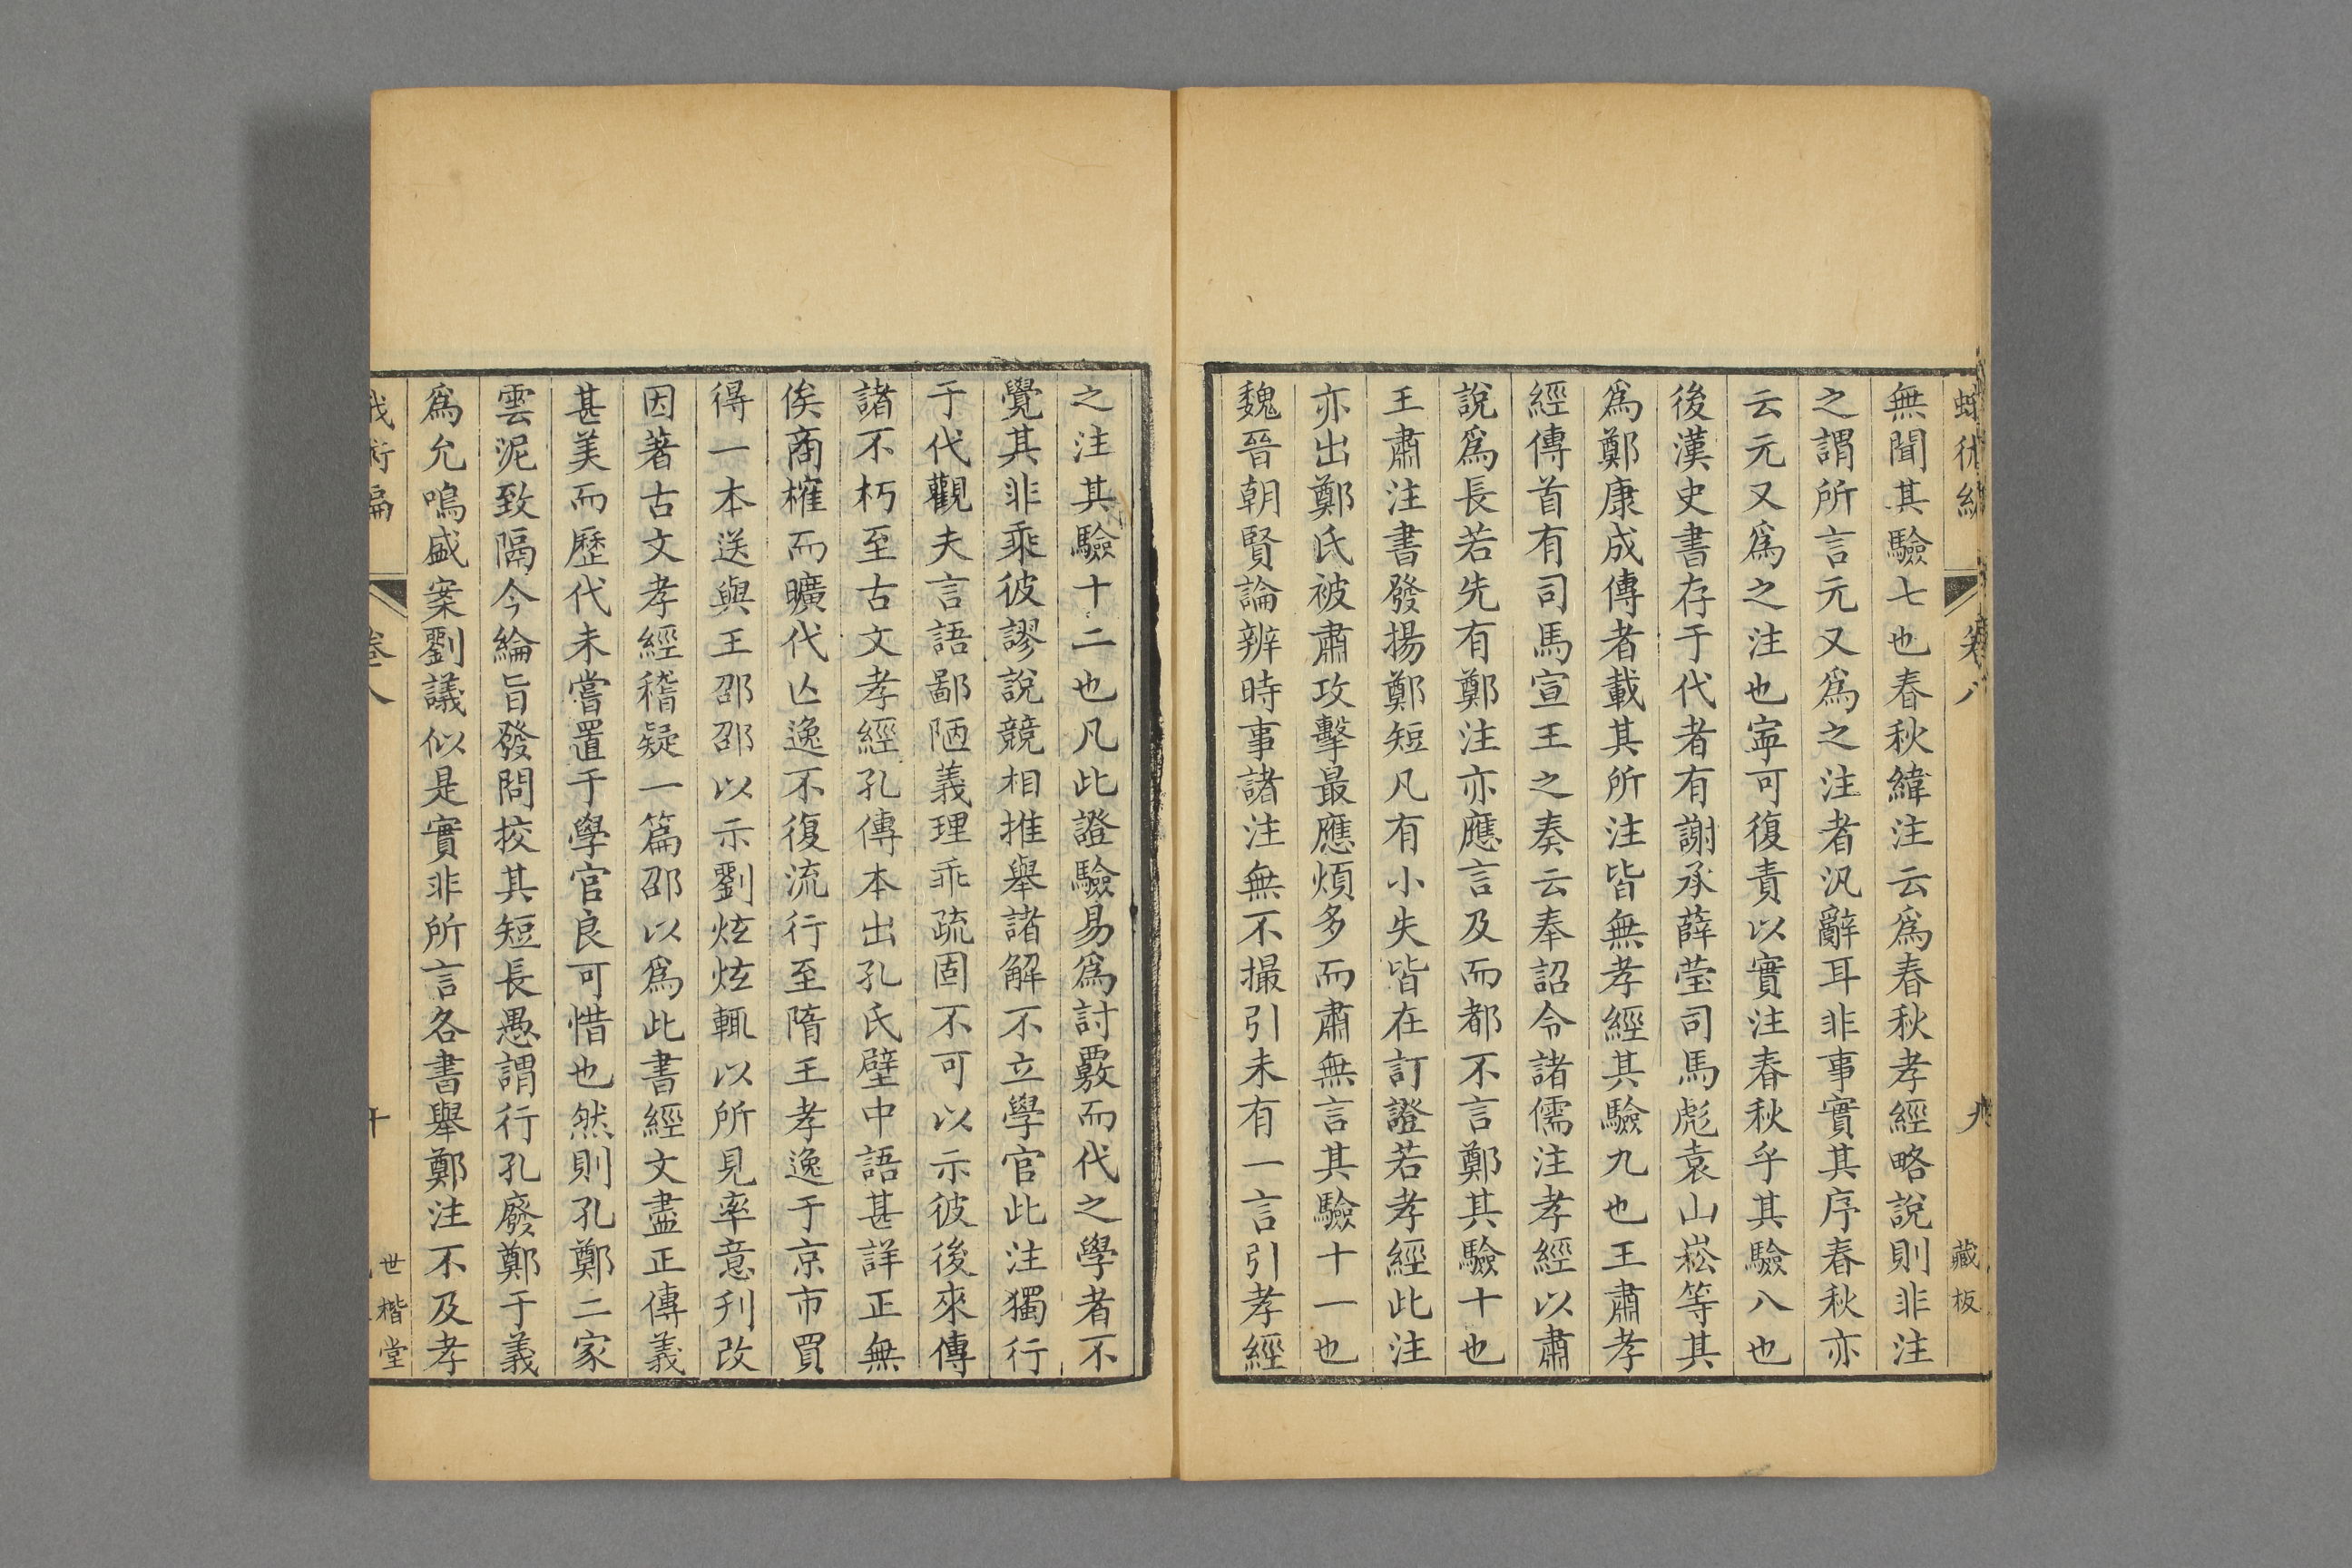 無聞其驗七也春秋緯注云爲春秋孝經略說則非注
之謂所言元又爲之注者汎辭耳非事實其序春秋亦
云元又爲之注也寧可復責以實注春秋乎其驗八也
後漢史書存于代者有謝承薛瑩司馬彪袁山崧等其
爲鄭康成傳者載其所注皆無孝經其驗九也王肅孝
經傳首有司馬宣王之奏云奉詔令諸儒注孝經以肅
說爲長若先有鄭注亦應言及而都不言鄭其驗十也
王肅注書發揚鄭短凡有小失皆在訂證若孝經此注
亦出鄭氏被肅攻擊最應煩多而肅無言其驗十一也
魏晉朝賢論辨時事諸注無不撮引未有一言引孝經
之注其驗十二也凡此證驗易爲討覈而代之學者不
覺其非乘彼謬說競相推舉諸解不立學官此注獨行
于代觀夫言語鄙陋義理乖疏固不可以示彼後來傳
諸不朽至古文孝經孔傳本出孔氏壁中語甚詳正無
俟商榷而曠代亾逸不復流行至隋王孝逸于京市買
得一本送與王邵邵以示劉炫炫輒以所見率意刋改
因著古文孝經稽疑一篇邵以爲此書經文盡正傳義
甚美而歷代未嘗置于學官良可惜也然則孔鄭二家
雲泥致隔今綸旨發問挍其短長愚謂行孔廢鄭于義
爲允鳴盛案劉議似是實非所言各書舉鄭注不及孝
卷八
世楷堂
藏板